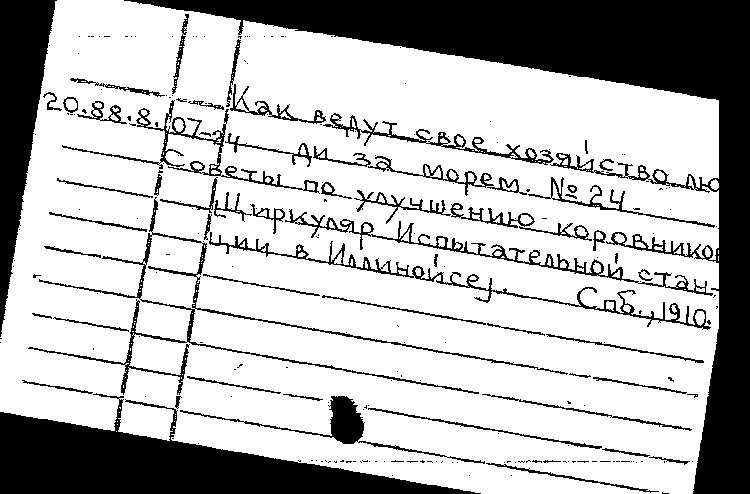 Как ведут свое хозяйство лю
20.88.8.107-24 ди за морем. № 24.
Советы по улучшению коровников
Циркуляр Испытательной стан-
ции в Иллинойсе]. Спб., 1910.